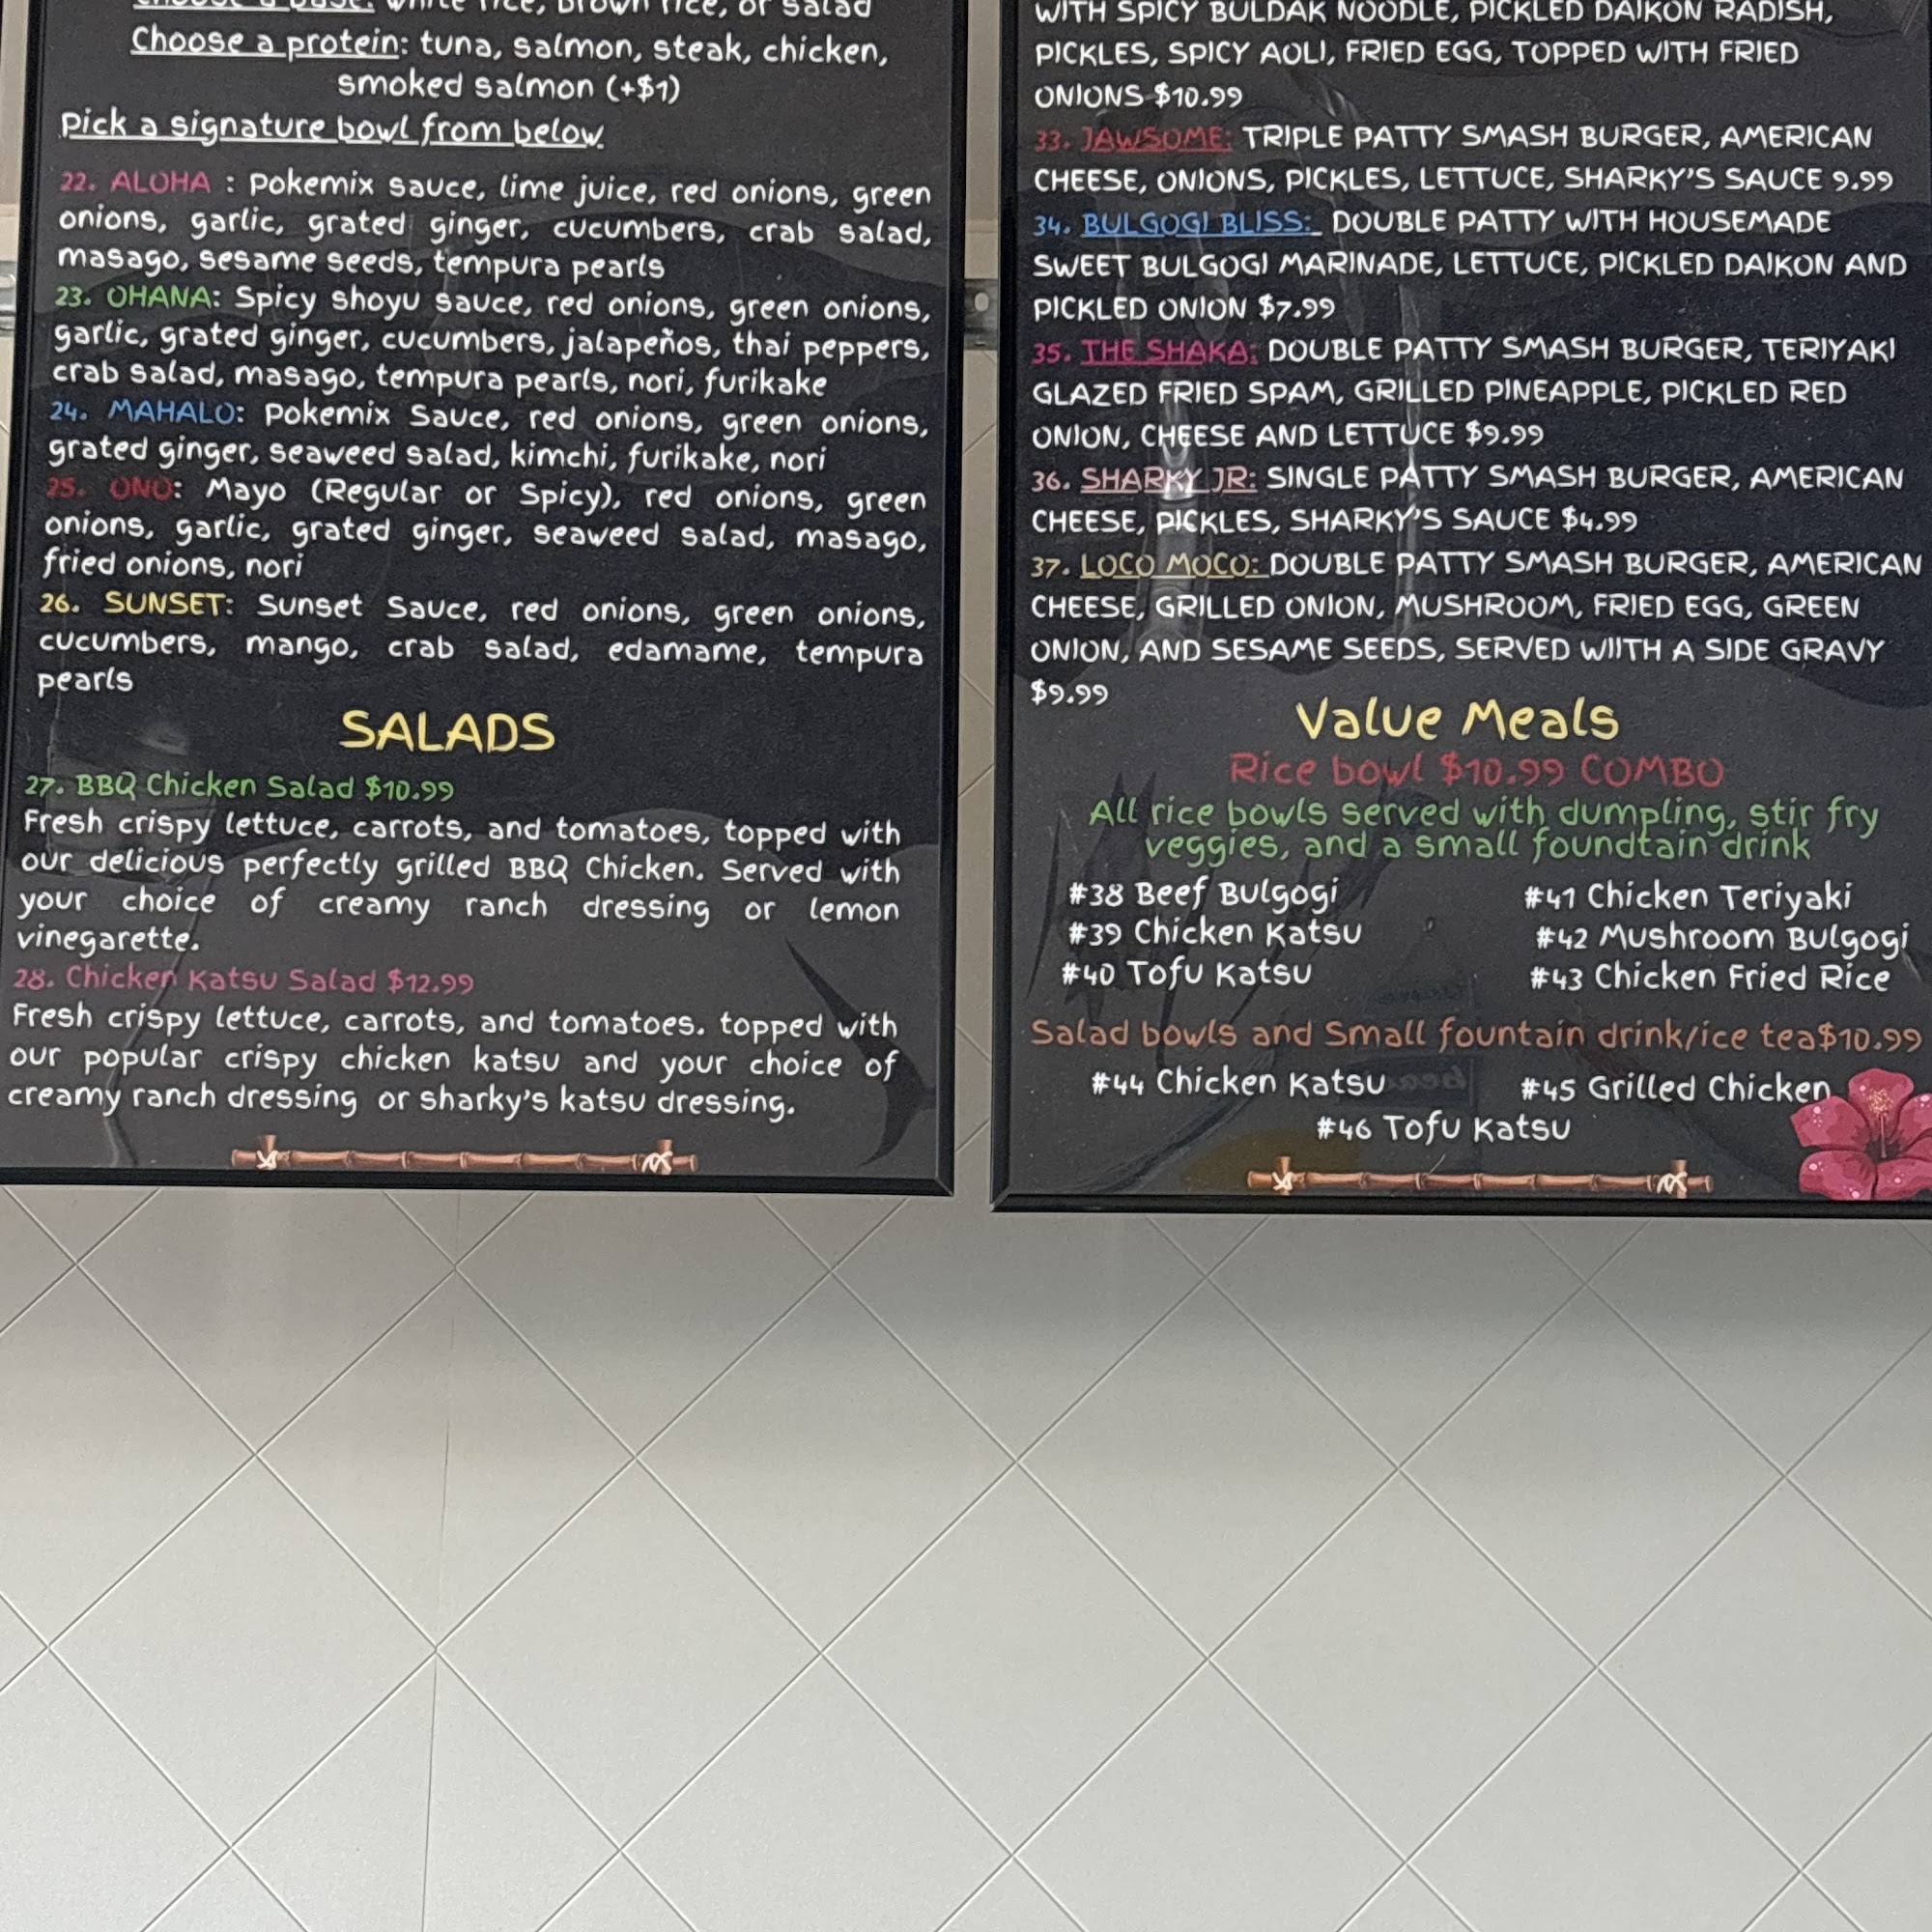 white rice, brown rice, or salad
Choose a protein: tuna, salmon, steak, chicken,
smoked salmon (+$1)
Pick a signature bowl from below.
22. ALOHA : Pokemix sauce, lime juice, red onions, green
onions, garlic, grated ginger, cucumbers, crab salad,
masago, sesame seeds, tempura pearls
23. OHANA: Spicy shoyu sauce, red onions, green onions,
garlic, grated ginger, cucumbers, jalapeños, thai peppers,
crab salad, masago, tempura pearls, nori, furikake
24. MAHALO: Pokemix Sauce, red onions, green onions,
grated ginger, seaweed salad, kimchi, furikake, nori
25. ONO: Mayo (Regular or Spicy), red onions, green
onions, garlic, grated ginger, seaweed salad, masago,
fried onions, nori
26. SUNSET: Sunset Sauce, red onions, green onions,
cucumbers, mango, crab salad, edamame, tempura
pearls
SALADS
27. BBQ Chicken Salad $10.99
Fresh crispy lettuce, carrots, and tomatoes, topped with
our delicious perfectly grilled BBQ Chicken. Served with
your choice of creamy ranch dressing or lemon
vinegarette.
28. Chicken Katsu Salad $12.99
Fresh crispy lettuce, carrots, and tomatoes. topped with
our popular crispy chicken katsu and your choice of
creamy ranch dressing or sharky's katsu dressing.
WITH SPICY BULDAK NOODLE, PICKLED DAIKON RADISH,
PICKLES, SPICY AOLI, FRIED EGG, TOPPED WITH FRIED
ONIONS $10.99
33. JAWSOME: TRIPLE PATTY SMASH BURGER, AMERICAN
CHEESE, ONIONS, PICKLES, LETTUCE, SHARKY'S SAUCE 9.99
34. BULGOGI BLISS: DOUBLE PATTY WITH HOUSEMADE
SWEET BULGOGI MARINADE, LETTUCE, PICKLED DAIKON AND
PICKLED ONION $7.99
35. THE SHAKA: DOUBLE PATTY SMASH BURGER, TERIYAKI
GLAZED FRIED SPAM, GRILLED PINEAPPLE, PICKLED RED
ONION, CHEESE AND LETTUCE $9.99
36. SHARKY JR: SINGLE PATTY SMASH BURGER, AMERICAN
CHEESE, PICKLES, SHARKY'S SAUCE $4.99
37. LOCO MOCO: DOUBLE PATTY SMASH BURGER, AMERICAN
CHEESE, GRILLED ONION, MUSHROOM, FRIED EGG, GREEN
ONION, AND SESAME SEEDS, SERVED WIITH A SIDE GRAVY
$9.99
Value Meals
Rice bowl $10.99 COMBO
All rice bowls served with dumpling, stir fry
veggies, and a small foundtain drink
#38 Beef Bulgogi
#39 Chicken Katsu
#40 Tofu Katsu
#41 Chicken Teriyaki
#42 Mushroom Bulgogi
#43 Chicken Fried Rice
Salad bowls and Small fountain drink/ice tea$10.99
#44 Chicken Katsu
#45 Grilled Chicken
#46 Tofu Katsu